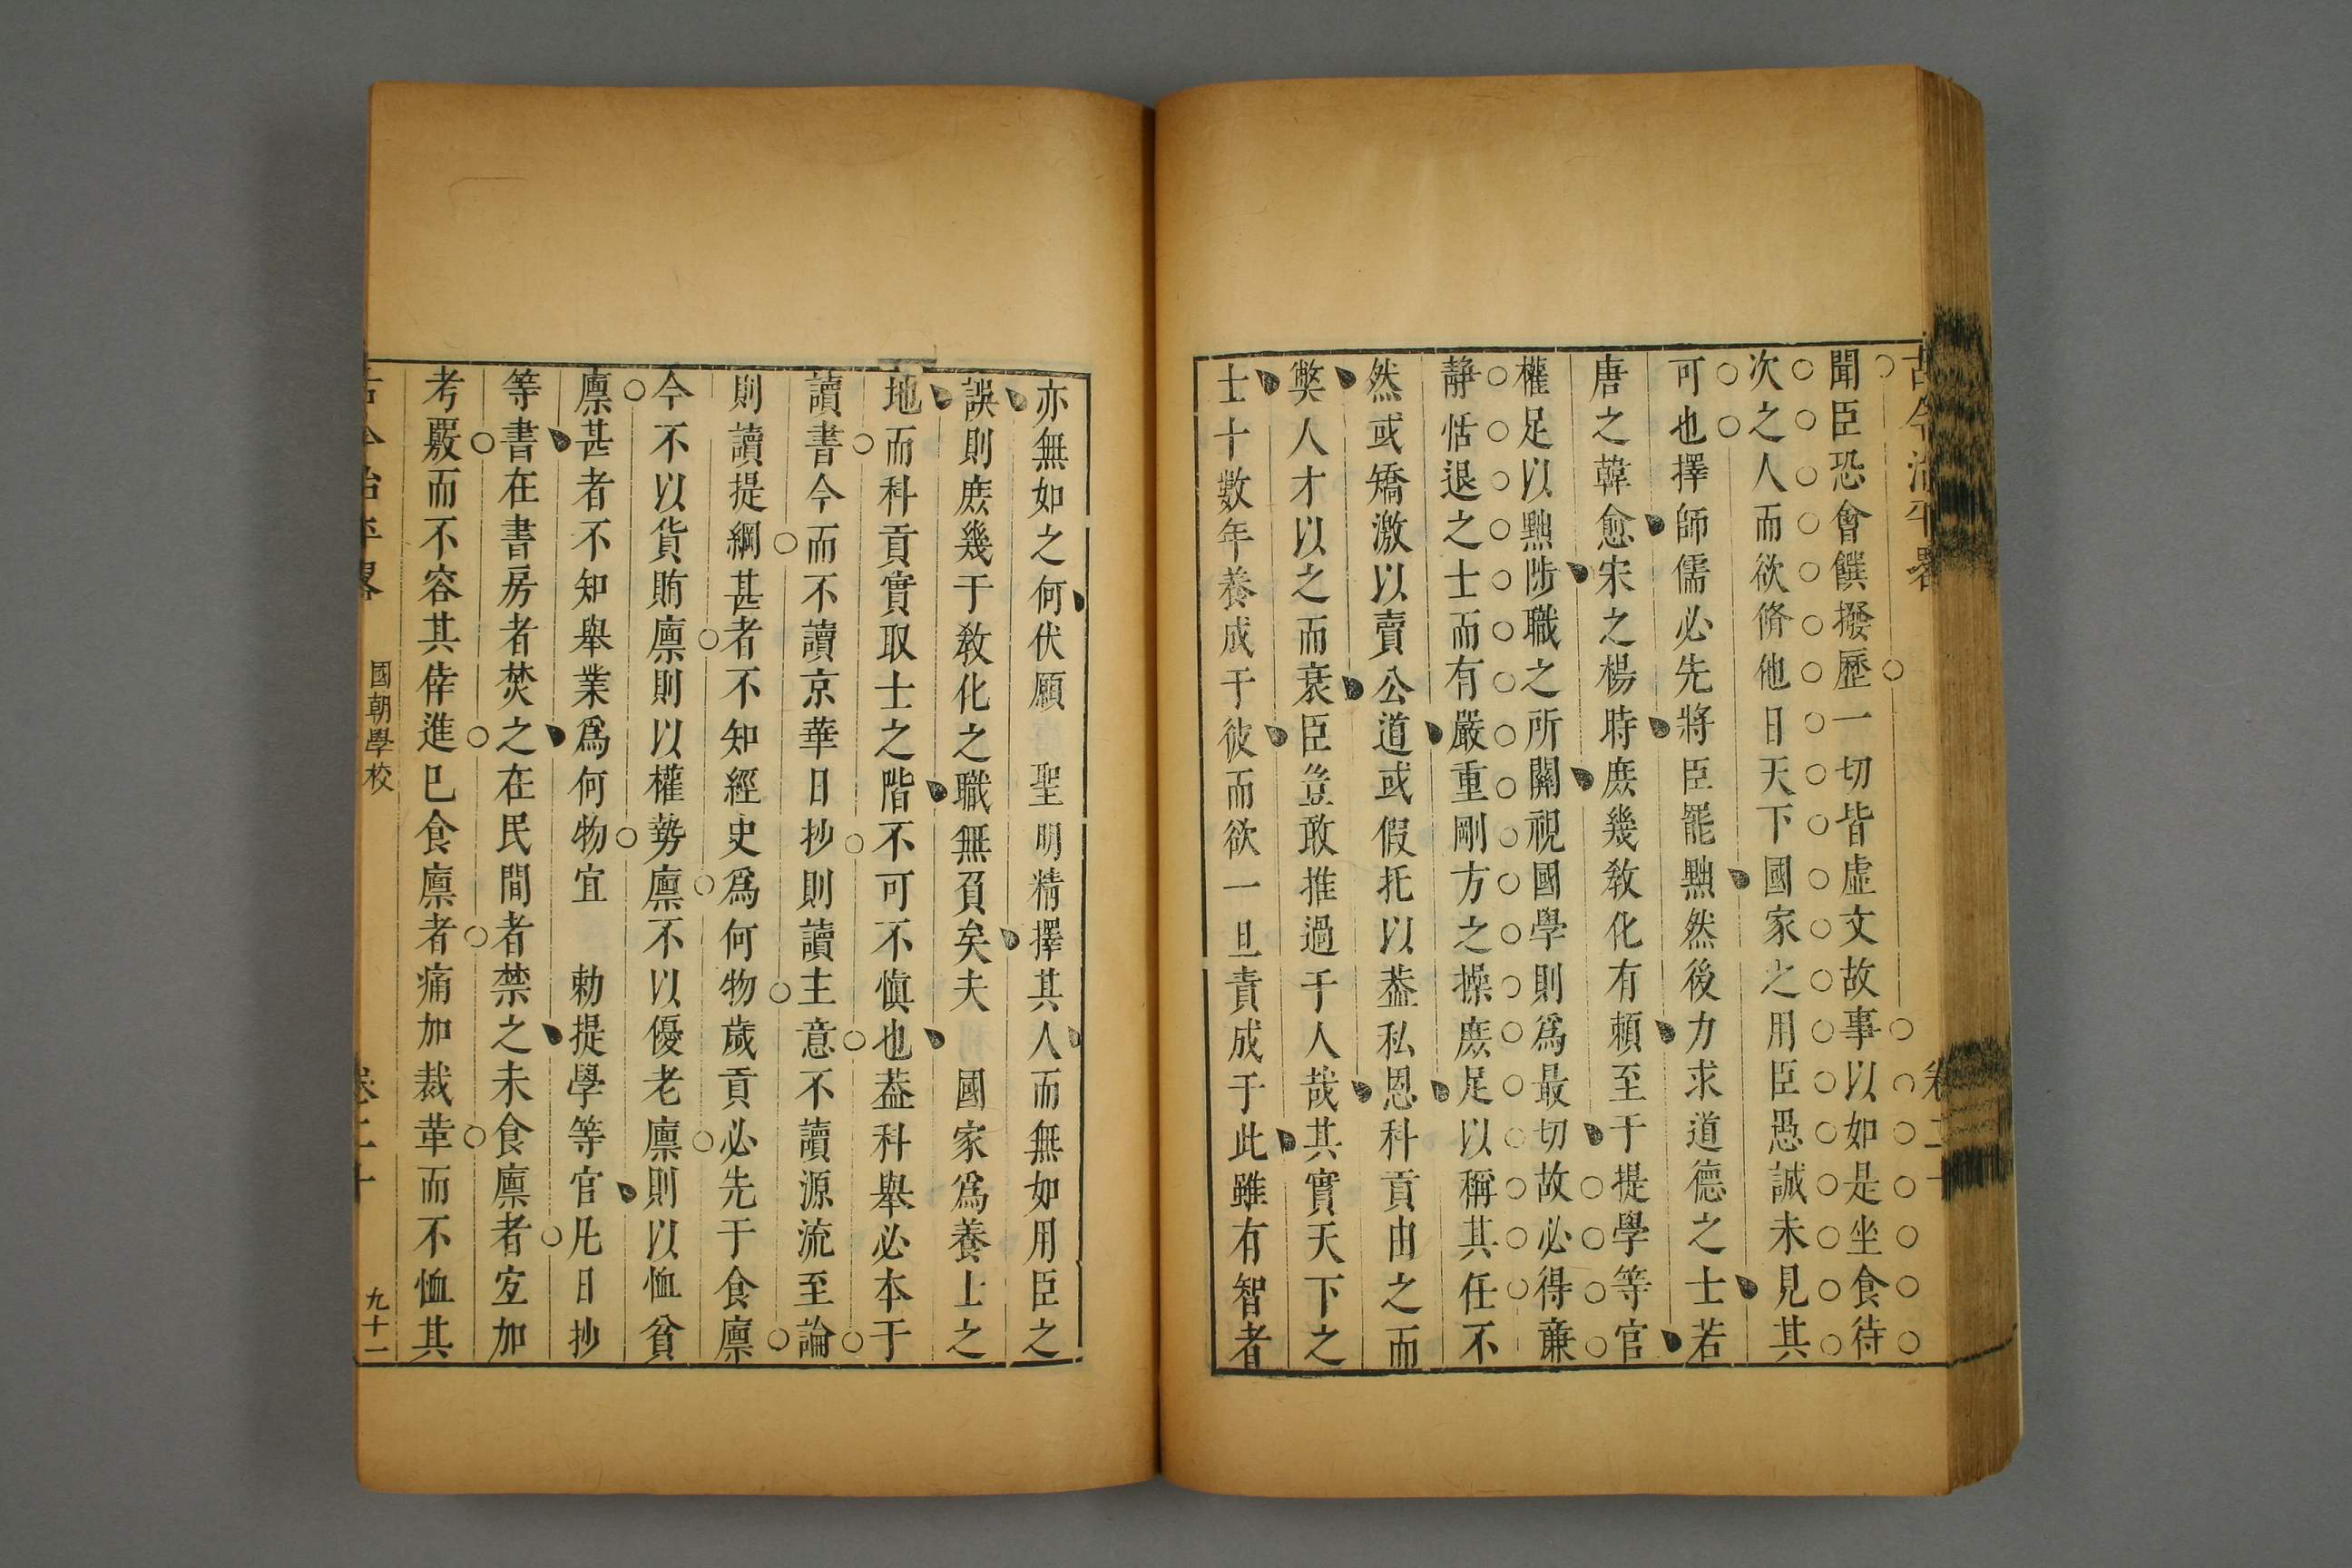 古今治平畧
卷二十
聞臣恐會饌撥歷一切皆虛文故事以如是坐食待
次之人而欲脩他日天下國家之用臣愚誠未見其
可也擇師儒必先將臣罷黜然後力求道德之士若
唐之韓愈宋之楊時庶幾敎化有賴至于提學等官
權足以黜陟職之所關視國學則爲最切故必得亷
靜恬退之士而有嚴重剛方之操庶足以稱其任不
然或矯激以賣公道或假托以葢私恩科貢由之而
弊人才以之而衰臣豈敢推過于人哉其實天下之
士十數年養成于彼而欲一旦責成于此雖有智者
亦無如之何伏願 聖明精擇其人而無如用臣之
誤則庶幾于敎化之職無負矣夫 國家爲養士之
地而科貢實取士之階不可不愼也葢科舉必本于
讀書今而不讀京華日抄則讀主意不讀源流至論
則讀提綱甚者不知經史爲何物歲貢必先于食廩
今不以貨賄廩則以權勢廩不以優老廩則以恤貧
廩甚者不知舉業爲何物宜 勅提學等官凡日抄
等書在書房者焚之在民間者禁之未食廩者宐加
考覈而不容其倖進已食廩者痛加裁革而不恤其
古今治平畧
國朝學校
卷二十
九十一